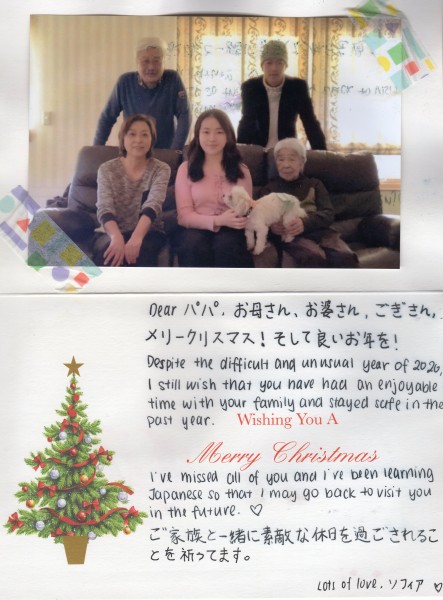 Dear パパ、お母さん、お婆さん、ごぎさん、
メリークリスマス！そして良いお年を！
Despite the difficult and unusual year of 2020,
I still wish that you have had an enjoyable
time with your family and stayed safe in the
past year.
Wishing You A
Merry Christmas
I've missed all of you and I've been learning
Japanese so that I may go back to visit you
in the future. ♡
ご家族と一緒に素敵な休日を過ごされるこ
とを祈ってます。
Lots of love, ソフィア ♡